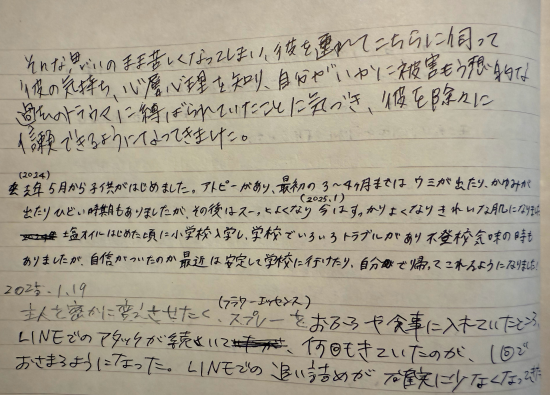 そんな思いのまま苦しくなってしまい、彼を連れてこちらに伺って
彼の気持ち、心層心理を知り、自分がいかに被害もう想的な
過去のトラウマに縛ばられていたことに気づき、彼を除々に
信頼できるようになってきました。
(2024)
去年5月から子供がはじめました。アトピーがあり、最初の3〜4ヶ月まではウミが出たり、かゆみが
(2025.1)
出たりひどい時期もありましたが、その後はスーッとよくなり今はすっかりよくなりきれいな肌になりました
塩オイルはじめた頃に小学校入学し、学校でいろいろトラブルがあり不登校気味の時も
ありましたが、自信がついたのか最近は安定して学校に行けたり、自分で帰ってこれるようになりました!
2025.1.19
(フラワーエッセンス)
主人を密かに変化させたく、スプレーをおふろや食事に入れていたところ、
LINEでのアタックが続いて、何回もきていたのが、1回で
おさまるようになった。LINEでの追い詰めが確実に少なくなってきた